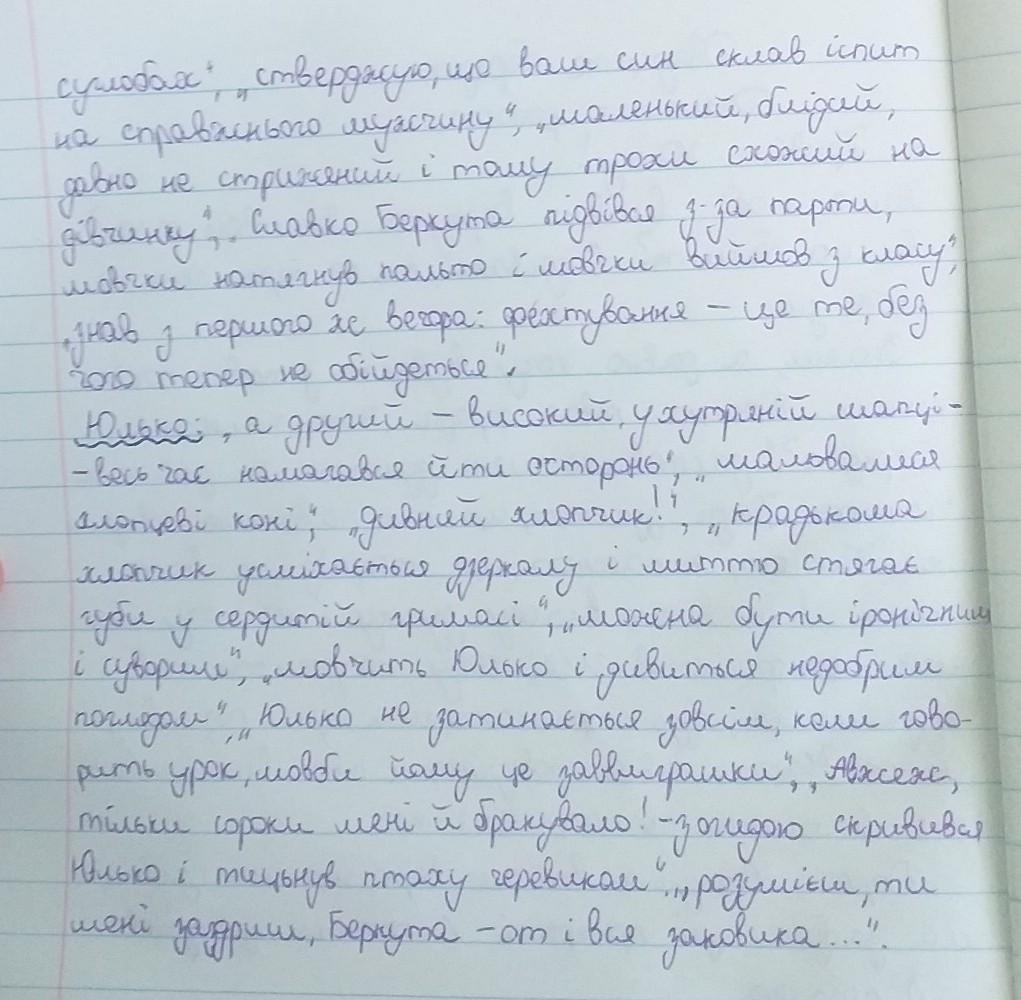 суглобах", „стверджую, що ваш син склав іспит
на справжнього мужчину", „маленький, блідий,
давно не стрижений і тому трохи схожий на
дівчинку", „Славко Беркута підвівся з-за парти,
мовчки натягнув пальто і мовчки вийшов з класу",
„знав з першого ж вечора: фехтування – це те, без
чого тепер не обійдеться".
Юлько: „а другий – високий, у хутряній шапці –
– весь час намагався йти осторонь", „малювалися
хлопцеві коні", „дивний хлопчик!", „крадькома
хлопчик усміхається дзеркалу і миттю стягає
губи у сердитій гримасі", „можна бути іронічним
і суворим", „мовчить Юлько і дивиться недобрим
поглядом", „Юлько не затинається зовсім, коли гово-
рить урок, мовби йому це заввиграшки", „Авжеж,
тільки сороки мені й бракувало! – з огидою скривився
Юлько і тицьнув птаху черевиком", „розумієш, ти
мені заздриш, Беркута – от і вся заковика...".